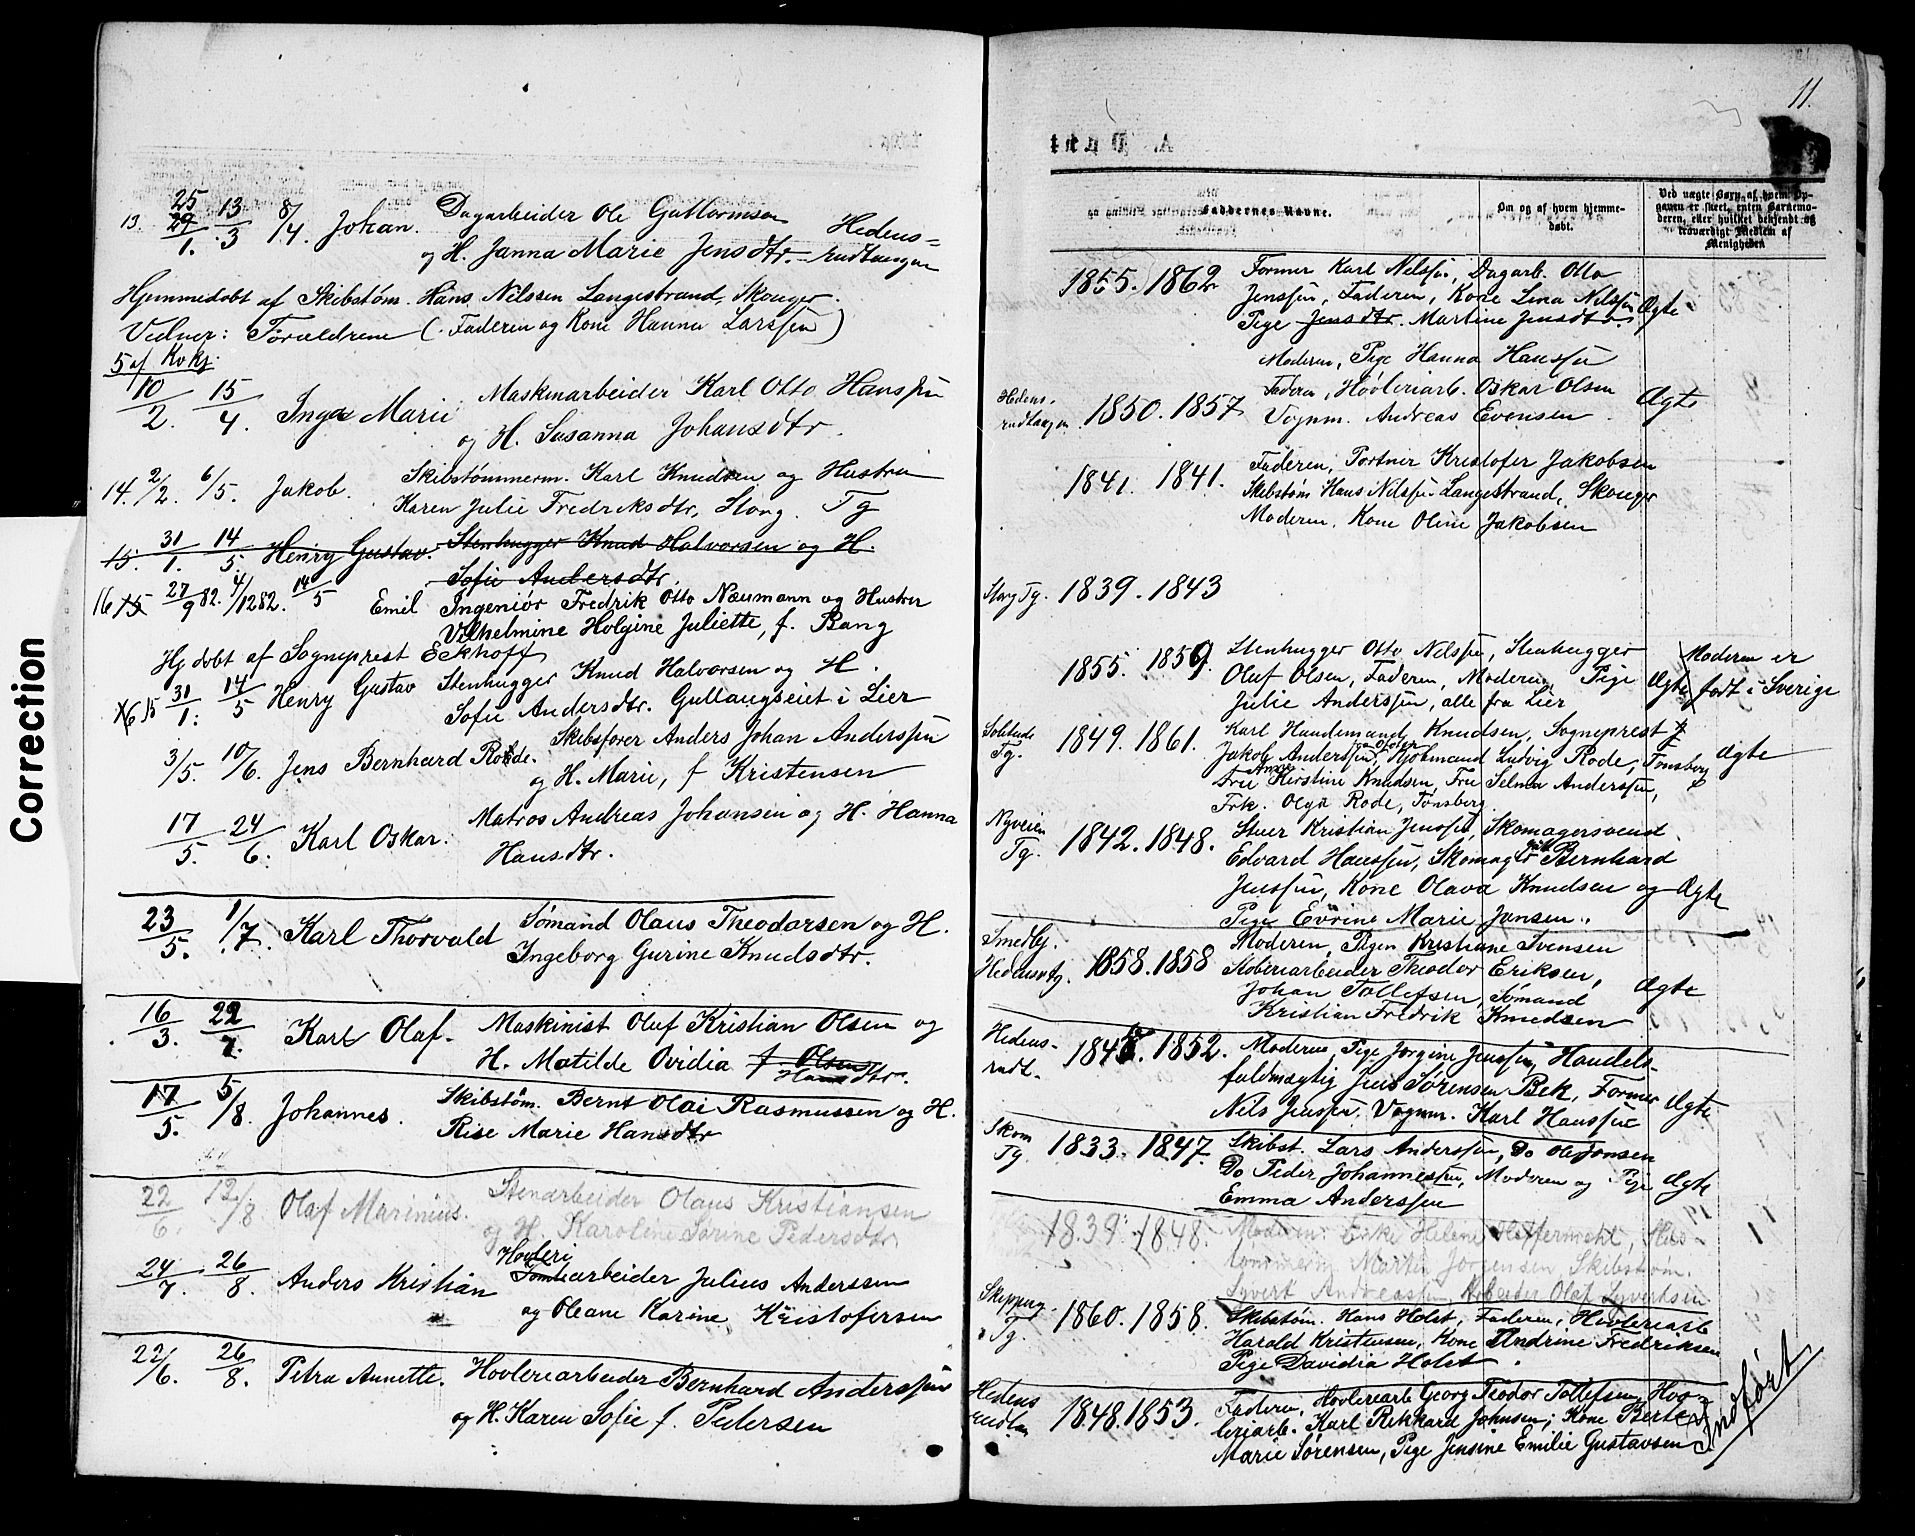 Correction
13. 25 29/1. 13/3 8/4. Johan. Dagarbeider Ole Guttormsen Hedens-
og H. Janna Marie Jensdtr. rudtangen
Hjemmedøbt af Skibstøm. Hans Nilssen Langestrand, Skouger.
Vidner: Forældrene (Faderen og Kone Hanna Larssen)
5 af Kvkj.
10/2. 15/4. Inga Marie Maskinarbeider Karl Otto Hanssen
og H. Susanna Johansdtr.
14. 2/2. 6/5. Jakob. Skibstømmerm. Karl Knudsen og Hustru
Karen Julie Fredriksdtr, Stong. Tg
15. 31/1. 14/5. Henry Gustav. Stenhugger Knud Halvorsen og H.
Sofie Andersdtr.
16 15 27/9 82. 4/12 82. 14/5 Emil Ingeniør Fredrik Otto Neumann og Hustru
Vilhelmine Holgine Juliette, f. Bang
Hj døbt af Sogneprest Eckhoff
16 15 31/1. 14/5 Henry Gustav Stenhugger Knud Halvorsen og H.
Sofie Andersdtr. Gullaugseiet i Lier
3/5. 10/6. Jens Bernhard Rode. Skibsfører Anders Johan Anderssen
og H. Marie, f Kristensen
17/5. 24/6. Karl Oskar. Matros Andreas Johansen og H. Hanna
Hansdtr.
23/5. 1/7. Karl Thorvald Sømand Olaus Theodorsen og H.
Ingeborg Gurine Knudsdtr.
16/3. 22/7. Karl Olaf. Maskinist Oluf Kristian Olsen og
H. Matilde Ovidia f Olsen
Hansdtr.
17/5. 5/8. Johannes. Skibstøm. Bernt Olai Rasmussen og H.
Rise Marie Hansdtr
22/6. 12/8 Olaf Marinius. Stenarbeider Olaus Kristiansen
og H. Karoline Sørine Pedersdtr
24/7. 26/8. Anders Kristian Høvleri
Tomtearbeider Julius Anderssen
og Oleane Karine Kristofersen
22/6. 26/8. Petra Annette. Høvleriarbeider Bernhard Anderssen
og H. Karen Sofie f. Pedersen
11.
Faddernes Navne.
Om og af hvem hjemme-
døbt.
Ved uægte Børn, af hvem Op-
gaven er skeet, enten Barnemo-
deren, eller hvilket bekjendt og
troværdigt Medlem af
Menigheden
1855. 1862 Former Karl Nilssen, Dagarb. Otto
Jenssen, Faderen, Kone Lina Nilssen Ægte
Pige Jensdtr. Martine Jensdtr.
Moderen, Pige Hanna Hanssen
Hedens-
rudtangen. 1850. 1857 Faderen, Høvleriarb. Oskar Olsen
Vognm. Andreas Evensen. Ægte
1841. 1841. Faderen, Portner Kristofer Jakobsen
Skibstøm Hans Nilssen Langestrand, Skouger
Moderen, Kone Oline Jakobsen
Stong Tg. 1839. 1843
1855. 1859. Stenhugger Otto Nilssen, Stenhugger
Oluf Olsen, Faderen, Moderen, Pige Ægte
Julie Anderssen, alle fra Lier
Moderen er
født i Sverige
Solitude
Tg. 1849. 1861. Karl Handemand Knudsen, Sogneprest
Jakob Anderssen, Kjøbmand Ludvig Rode, Tønsberg Ægte
Fru Anne Kirstine Knudsen, Fru Selma Anderssen,
Frk. Olga Rode, Tønsberg.
Nyveien
Tg. 1842. 1848. Stuer Kristian Jenssen, Skomagersvend
Edvard Hanssen, Skomager Bernhard
Jenssen, Kone Olava Knudsen og Ægte
Pige Evrine Marie Jansen.
Smedbj.
Hedensrtg. 1858. 1858 Moderen, Pigen Kristiane Svensen
Støberiarbeider Theodor Eriksen,
Johan Tollefsen, Sømand Ægte
Kristian Fredrik Knudsen
Hedens-
rudt. 1847. 1852. Moderen, Pige Jørgine Jenssen, Handels-
fuldmægtig Jens Sørensen Bek, Former Ægte
Nils Jenssen. Vognm. Karl Hanssen
Skom
Tg. 1833. 1847. Skibst. Lars Anderssen, Do Ole Jonsen
Do Peder Johannessen, Moderen og Pige Ægte
Emma Anderssen
1839. 1848. Moderen, Enke Helene Heffermehl, Hus-
tømmerm Martin Jørgensen, Skibstøm.
Syvert Andreassen, Arbeider Olaf Syvertsen
Skippug.
Tg. 1860. 1858. Skibstøm. Hans Holst, Faderen, Høvleriarb
Harald Kristensen, Kone Andrine Fredriksen
Pige Davidia Holst.
Hedens
rudtan 1848. 1853. Faderen, Høvleriarb Georg Teodor Tollefsen, Høv-
leriarb. Karl Rikkard Johnsen, Kone Berte
Marie Sørensen, Pige Jensine Emilie Gustavsen
Indført